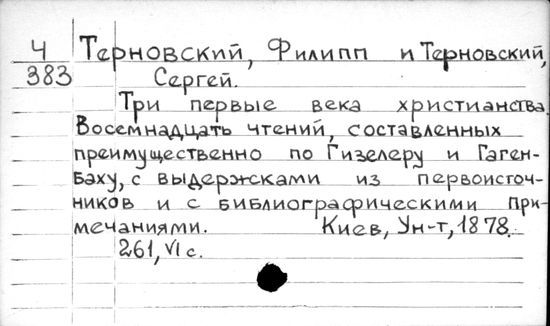 Ч Терновский, Филипп и Терновский,
383 Сергей.
Три первые века христианства.
Восемнадцать чтений, составленных
преимущественно по Гизелеру и Гаген-
баху, с выдержсками из первоисточ-
ников и с библиографическими при-
мечаниями. Киев, Ун-т, 1878.
261, VI с.